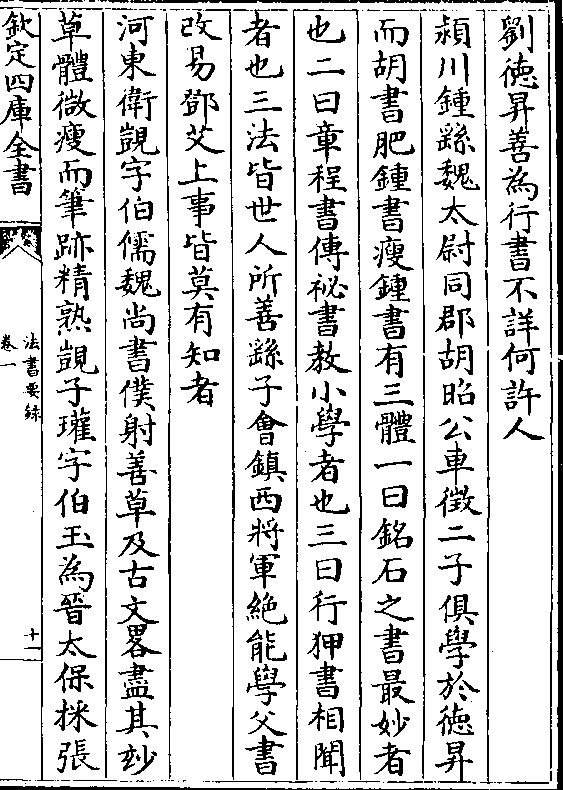 劉徳昇善為行書不詳何許人
潁川鍾繇魏太尉同郡胡昭公車徴二子俱學於徳昇
而胡書肥鍾書瘦鍾書有三體一曰銘石之書最妙者
也二曰章程書傳祕書教小學者也三曰行狎書相聞
者也三法皆世人所善繇子會鎮西將軍絶能學父書
改易鄧艾上事皆莫有知者
河東衛覬字伯儒魏尚書僕射善草及古文畧盡其玅
草體微瘦而筆跡精熟覬子瓘字伯玉為晉太保採張
欽定四庫全書
法書要録
卷一
十一